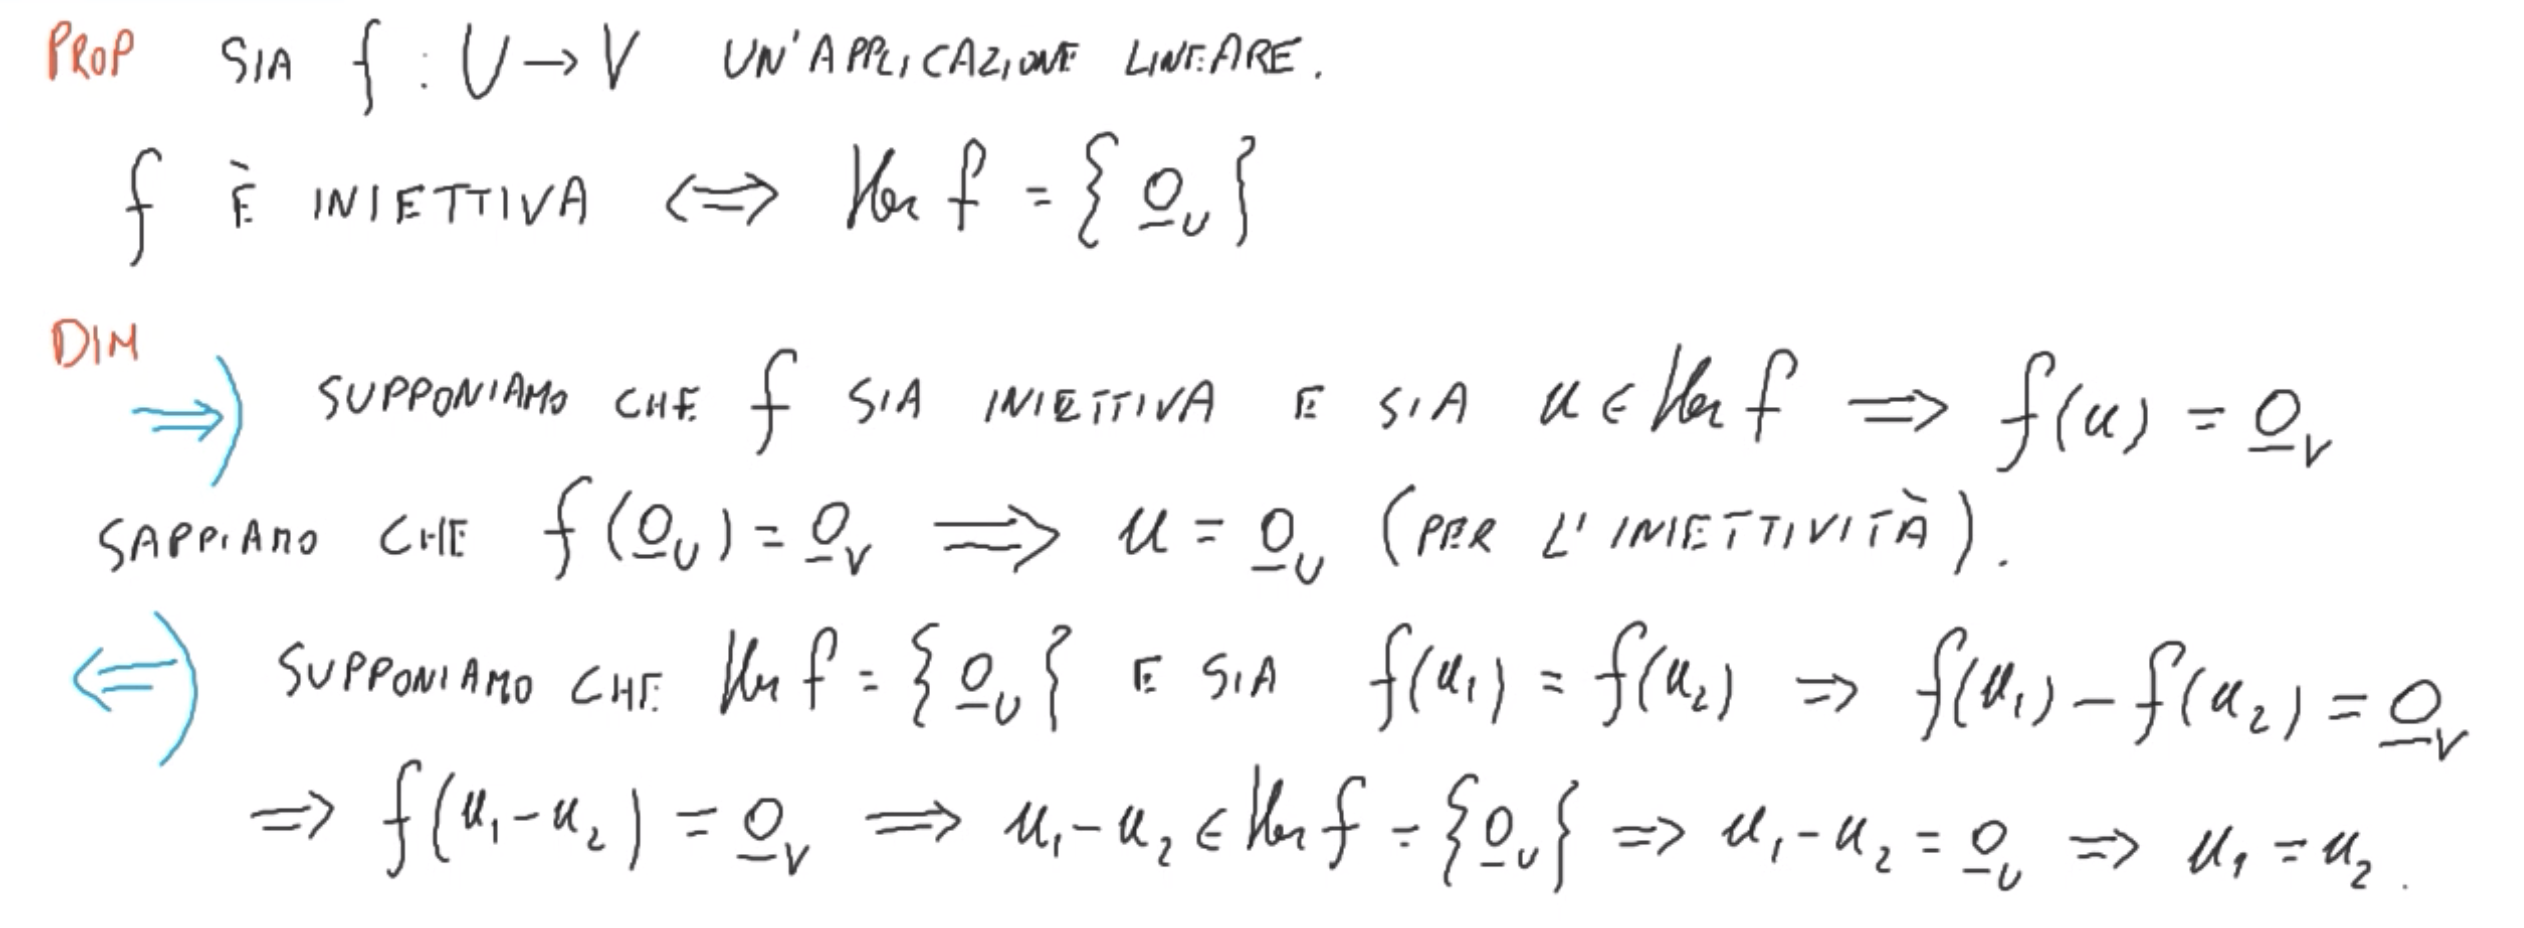 PROP SIA f : U → V UN'APPLICAZIONE LINEARE.
f È INIETTIVA ⟺ Ker f = { 0_U }
DIM
⇒) SUPPONIAMO CHE f SIA INIETTIVA E SIA u ∈ Ker f ⟹ f(u) = 0_V
SAPPIAMO CHE f(0_U) = 0_V ⟹ u = 0_U (PER L'INIETTIVITÀ).
⇐) SUPPONIAMO CHE Ker f = { 0_U } E SIA f(u₁) = f(u₂) ⟹ f(u₁) − f(u₂) = 0_V
⟹ f(u₁ − u₂) = 0_V ⟹ u₁ − u₂ ∈ Ker f = { 0_U } ⟹ u₁ − u₂ = 0_U ⟹ u₁ = u₂.